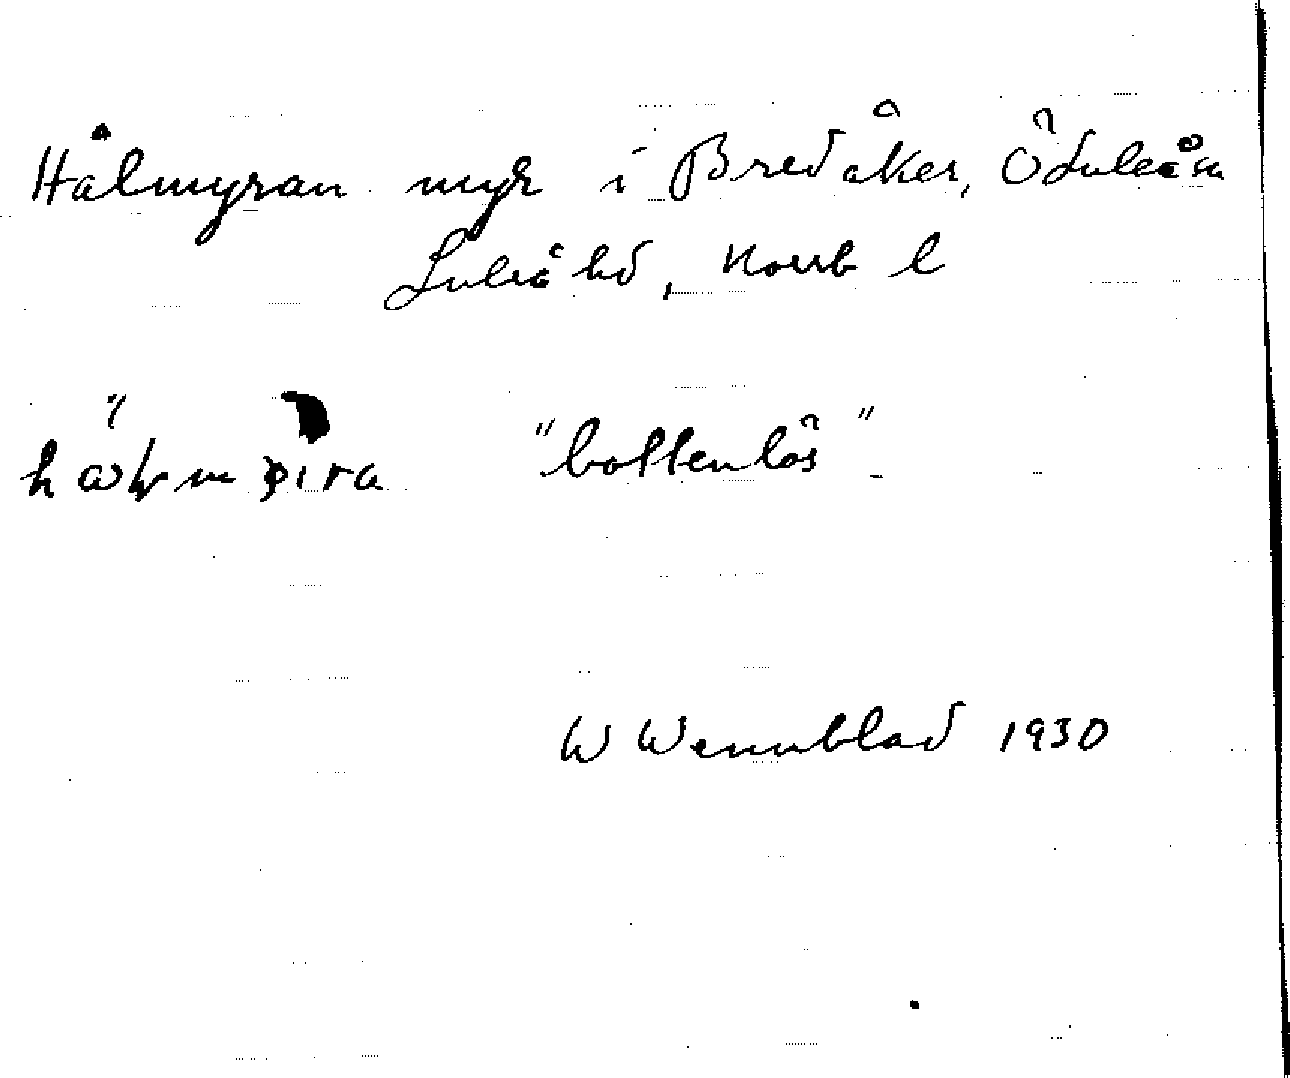 Hålmyran myr i Bredåker, ÖLuleå sn
Luleå hd, Norrb l
"bottenlös"
W Wennblad 1930